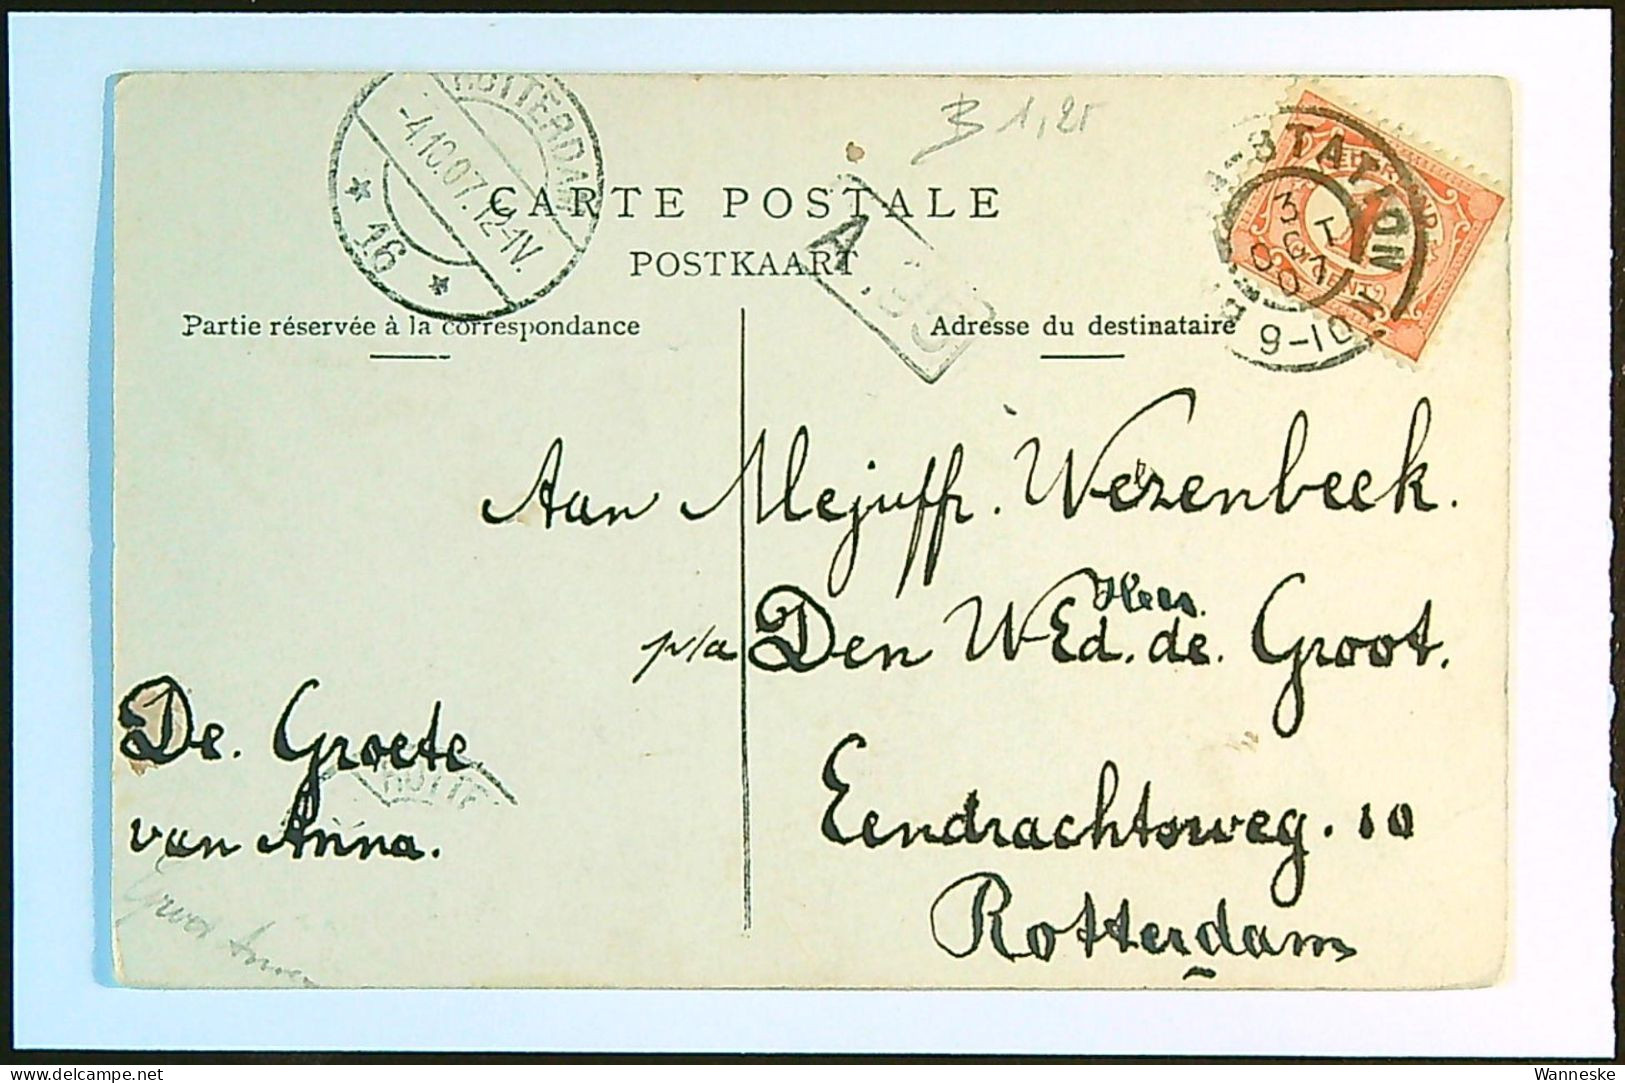 ROTTERDAM
-4.10.07. 12-1V.
* 16 *
B 1,25
CARTE POSTALE
POSTKAART
Partie réservée à la correspondance
Adresse du destinataire
-STATION
9-10V
Aan Mejuffr. Wezenbeek.
Heer.
p/a Den WEd. de. Groot.
De. Groete
Eendrachtsweg. 10
ROTTE
van Anna.
Rotterdam
Wanneske